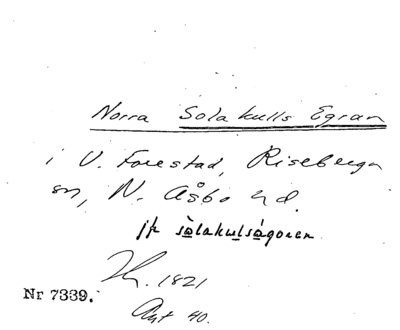 Norra Solakulls Egran
i V. Forestad, Riseberga
sn, N. Åsbo hd.
jfr sòlakulságoren
1821
Nr 7339.
Akt 40.